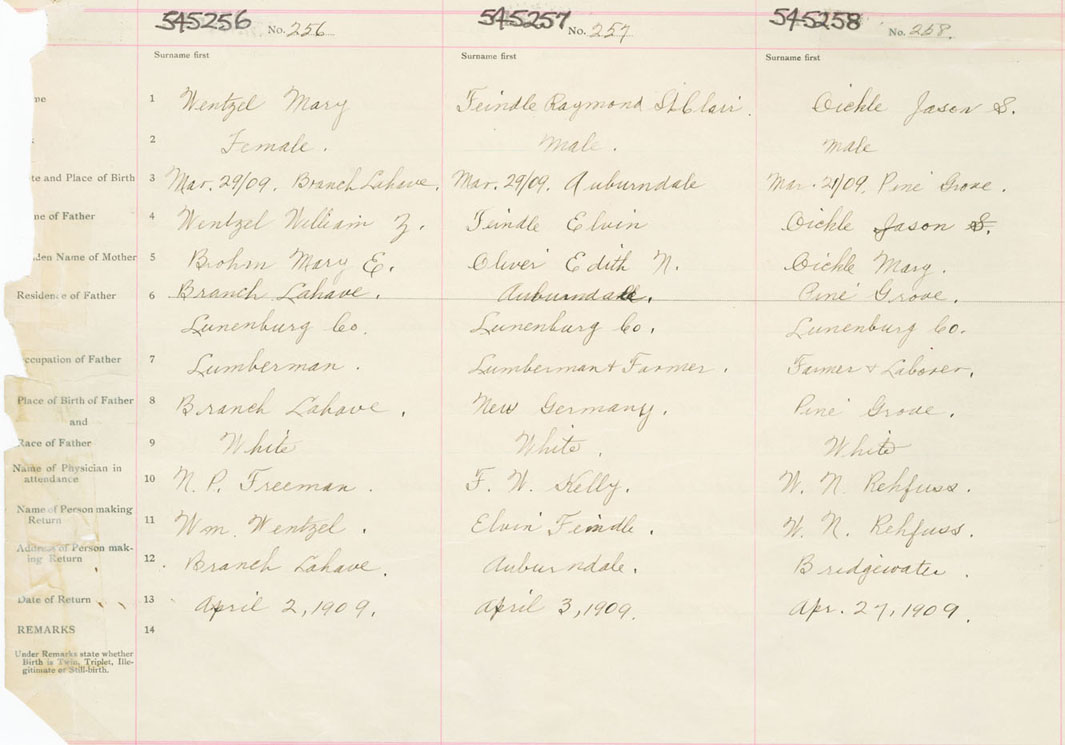 545256 No. 256 545257 No. 257 545258 No. 258.
Surname first Surname first Surname first
me 1 Wentzel Mary Feindle Raymond St. Clair. Oickle Jason S.
2 Female. Male. Male
te and Place of Birth 3 Mar. 29/09. Branch Lahave. Mar. 29/09. Auburndale Mar. 21/09. Pine Grove.
ne of Father 4 Wentzel William Z. Feindle Elvin Oickle Jason S.
den Name of Mother 5 Brohm Mary E. Oliver Edith N. Oickle Mary.
Residence of Father 6 Branch Lahave. Auburndale. Pine Grove.
Lunenburg Co. Lunenburg Co. Lunenburg Co.
ccupation of Father 7 Lumberman. Lumberman & Farmer. Farmer & Laborer.
Place of Birth of Father 8 Branch Lahave. New Germany. Pine Grove.
and
Race of Father 9 White White. White
Name of Physician in
attendance 10 N. P. Freeman. F. W. Kelly. W. N. Rehfuss.
Name of Person making
Return 11 Wm. Wentzel. Elvin Feindle. W. N. Rehfuss.
Address of Person mak-
ing Return 12 Branch Lahave. Auburndale. Bridgewater.
Date of Return 13 April 2, 1909. April 3, 1909. Apr. 27, 1909.
REMARKS 14
Under Remarks state whether
Birth is Twin, Triplet, Ille-
gitimate or Still-birth.